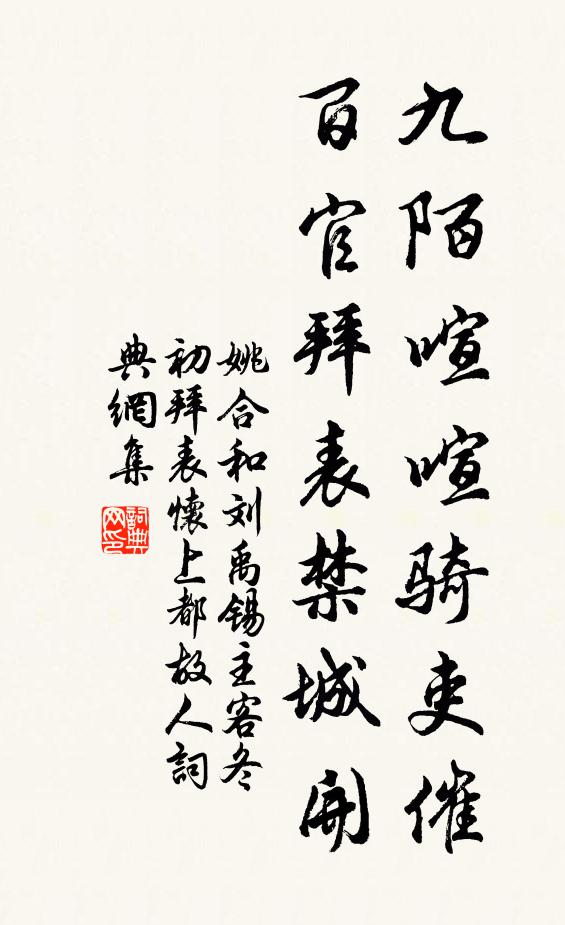 九陌喧喧骑吏催
百官拜表禁城開
姚合和刘禹锡主客冬
初拜表懷上都故人詞
典網集
詞典网印